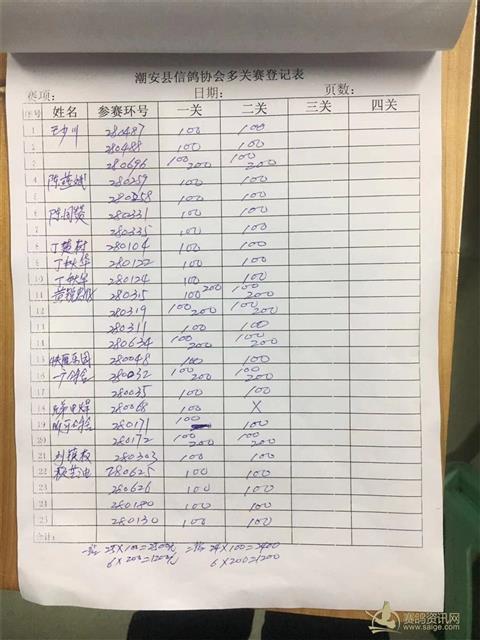 潮安县信鸽协会多关赛登记表
赛项: 日期: 页数:
序号 姓名 参赛环号 一关 二关 三关 四关
1 280487 100 100
2 280488 100 100
3 280696 100 200 100 200
4 280259 100 100
5 280258 100 100
6 280331 100 100
7 280335 100 100
8 280104 100 100
9 280122 100 100
10 280124 100 100
11 280315 100 200 100 200
12 280319 100 200 100 200
13 280311 100 100
14 280634 100 200 100 200
15 280048 100 100
16 280032 100 200 100 200
17 280035 100 100
18 280068 100 X
19 280171 100 100
20 280172 100 200 100 200
21 280303 100 100
22 280625 100 100
23 280626 100 100
24 280180 100 100
25 280130 100 100
合计:
25×100=2500元 24×100=2400
6×200=1200元 6×200=1200
赛鸽资讯网
www.saige.com